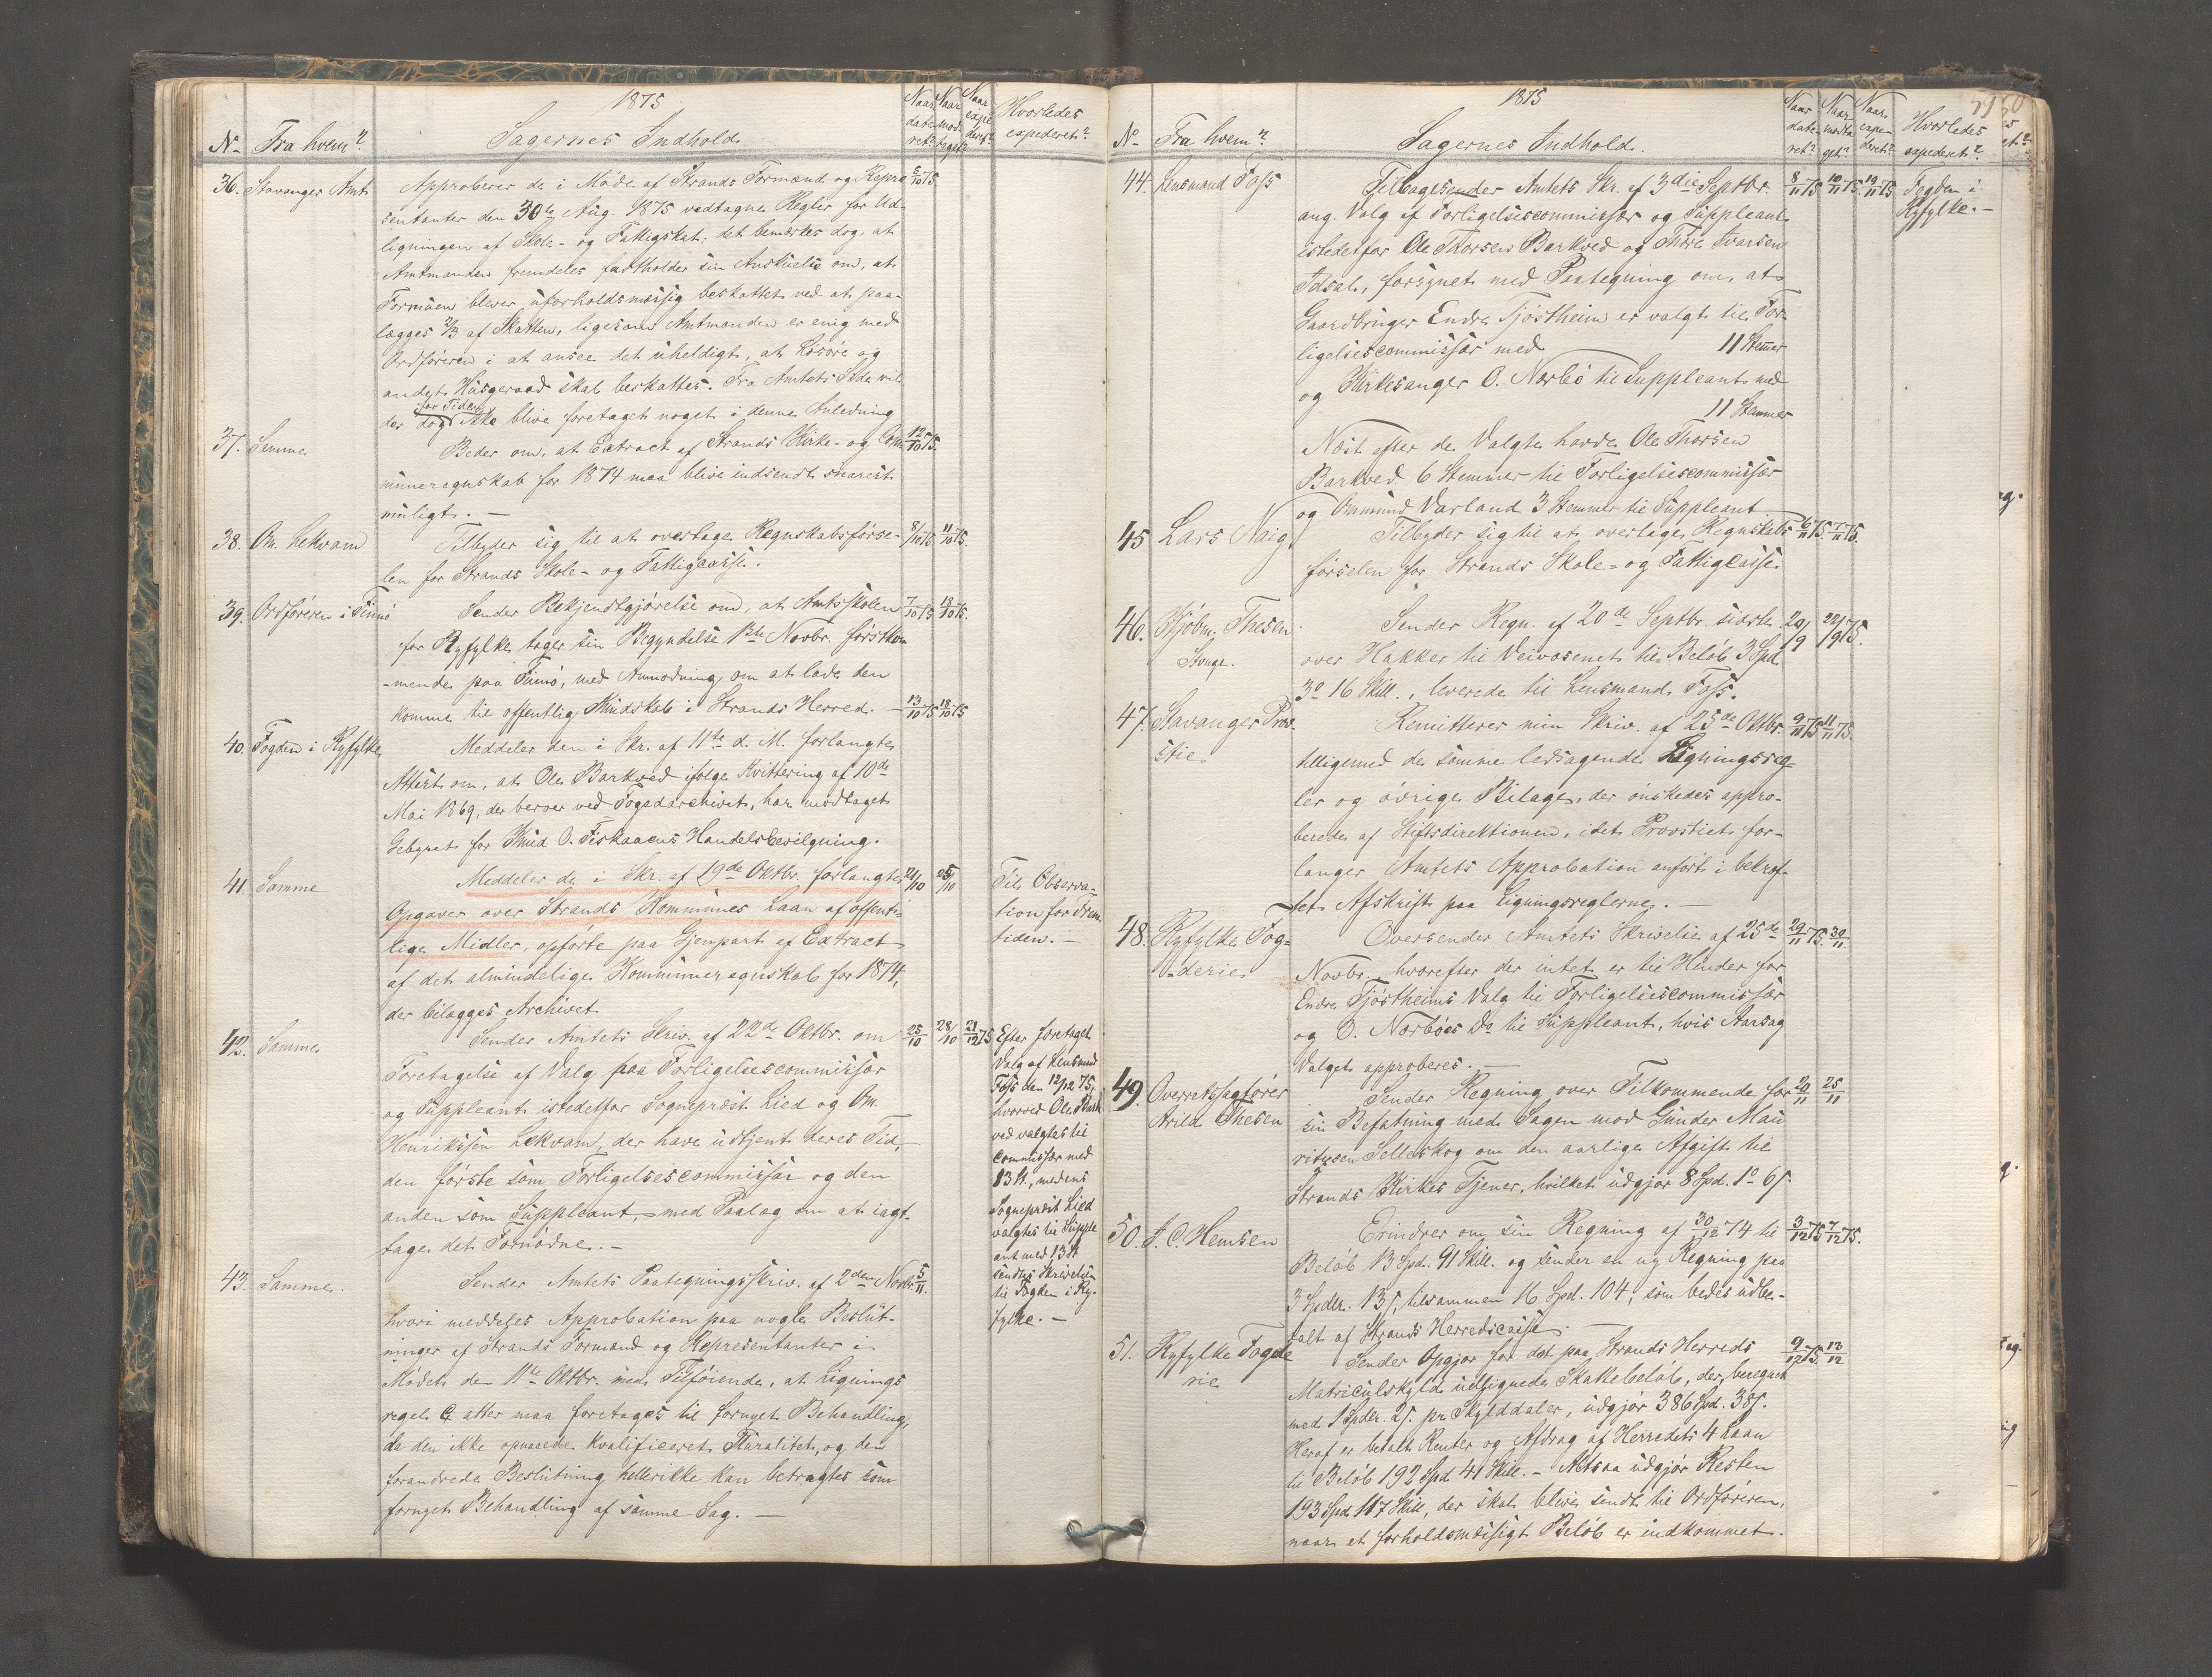 1875
No. Fra hvem? Sagernes Indhold. Naar dateret? Naar modtaget? Naar expederet? Hvorledes expederet?
36. Stavanger Amt. Approberer de i Møde af Strands Formænd og Repræ- 5/10 75.
sentanter den 30te Aug. 1875 vedtagne Regler for Ud-
ligningen af Skole- og Fattigskat; det bemærkes dog, at
Amtmanden fremdeles fastholder sin Anskuelse om, at
Formuen bliver uforholdsmæssig beskattet ved at paa-
lægges 2/3 af Skatten, ligesom Amtmanden er enig med
Ordføreren i at ansee det uheldigt, at Løsøre og
andet Husgeraad skal beskattes. Fra Amtets Side vil
for Tiden
der dog ikke blive foretaget noget i denne Anledning
37. Samme Beder om, at Extract af Strands Kirke- og Com- 12/10 75.
muneregnskab for 1874 maa blive indsendt snarest
muligt. —
38. Om. Lekvam Tilbyder sig til at overtage Regnskabsførse- 8/10 75 11/10 75.
len for Strands Skole- og Fattigcasse.
39. Ordføreren i Finnø Sender Bekjendtgjørelse om, at Amtsskolen 7/10 75 18/10 75.
for Ryfylke tager sin Begyndelse 1ste Novbr. førstkom-
mende paa Finnø, med Anmodning om at lade den
komme til offentlig Kundskab i Strands Herred. —
40. Fogden i Ryfylke Meddeler den i Skr. af 11te d. M. forlangte 13/10 75 18/10 75
Attest om, at Ole Barkved ifølge Kvittering af 10de
Mai 1869, der beroer ved Fogedarchivet, har modtaget
Gebyret for Knud O. Fiskaaens Handelsbevilgning.
41 Samme Meddeler de i Skr. af 19de Oktbr. forlangte 21/10 25/10 Til Observa-
Opgaver over Strands Kommunes Laan af offent- tion for Frem-
lige Midler, opførte paa Gjenpart af Extract tiden. —
af det almindelige Kommuneregnskab for 1874,
der bilægges Archivet
42. Samme Sender Amtets Skriv. af 22de Oktbr. om 25/10 28/10 21/12 75 Efter foretaget
Foretagelse af Valg paa Forligelsescommissær Valg af Lensmand
og Suppleant istedetfor Sognepræst Lied og Om. Foss den 12/12 75,
Henrikssen Lekvam, der have udtjent deres Tid, hvorved Ole Bark-
den første som Forligelsescommissær og den ved valgtes til
anden som Suppleant, med Paalæg om at iagt- Commissær med
tage det Fornødne. — 13 St., medens
Sognepræst Lied
valgtes til Supple-
ant med 13 St.
sendes Skrivelsen
til Fogden i Ry-
fylke. —
43. Samme. Sender Amtets Paategningsskriv. af 2den Novbr. 5/11.
hvori meddeles Approbation paa nogle Beslut-
ninger af Strands Formænd og Repræsentanter i
Mødet den 11te Oktbr. med Tilføiende, at Lignings-
regel C atter maa foretages til fornyet Behandling,
da den ikke opnaaede kvalificeret Pluralitet, og den
forandrede Beslutning hellerikke kan betragtes som
fornyet Behandling af samme Sag. —
1875
No. Fra hvem? Sagernes Indhold. Naar dateret? Naar modtaget? Naar expederet? Hvorledes expederet?
44. Lensmand Foss Tilbagesender Amtets Skr. af 3die Septbr. 8/11 75 10/11 75. 19/11 75 Fogden i
ang. Valg af Forligelsescommissær og Suppleant Ryfylke. —
istedetfor Ole Thorsen Barkved og Thore Ivarsen
Idsal, forsynet med Paategning om, at
Gaardbruger Endre Tjøstheim er valgt til For-
ligelsescommissær med 11 Stemmer
og Kirkesanger O. Nærbø til Suppleant med
11 Stemmer
Næst efter de Valgte havde Ole Thorsen
Barkved 6 Stemmer til Forligelsescommissær
og Ommund Varland 3 Stemmer til Suppleant
45 Lars Naig Tilbyder sig til at overtage Regnskabs- 6/11 75. 7/11 75.
førselen for Strands Skole- og Fattigcasse.
46. Kjøbm. Thesen Sender Regn. af 20de Septbr. sidste 20/9 22/9 75.
Stvngr. over Hakker til Veivæsenet til Beløb 3 Spd
3o 16 Skill., leverede til Lensmand Foss.
47. Stavanger Prov- Remitterer min Skriv. af 25de Oktbr. 9/11 75 11/11 75.
stie tilligemed de samme ledsagende Ligningsreg-
ler og øvrige Bilage, der ønskedes appro-
berede af Stiftsdirektionen, idet Provstiet for-
langer Amtets Approbation anført i bekræf-
tet Afskrift paa Ligningsreglerne. —
48. Ryfylke Fog- Oversender Amtets Skrivelse af 25de 29/11 75. 30/11
derie Novbr. hvorefter der intet er til Hinder for
Endre Tjøstheims Valg til Forligelsescommissær
og O. Nærbøes Do til Suppleant, hvis Aarsag
Valget approberes. —
49. Overretssagfører Sender Regning over Tilkommende for 20/11 25/11
Arild Thesen sin Befatning med Sagen mod Gunder Mau-
ritzsen Selleskog om den aarlige Afgift til
Strands Kirkes Tjener, hvilket udgjør 8 Spd. 1o 6s.
50. J. C. Hemsen Erindrer om sin Regning af 30/12 74 til 3/12 75 7/12 75.
Beløb 13 Spd. 91 Skill. og sender en ny Regning paa
3 Spdlr. 13s, tilsammen 16 Spd. 104, som bedes udbe-
talt af Strands Herredscasse. —
51. Ryfylke Fogde- Sender Opgjør for det paa Strands Herreds 9/12 75. 13/12
rie Matriculskyld udlignede Skattebeløb, der, beregnet
med 1 Spdlr. 2s. pr. Skylddaler, udgjør 386 Spd. 38s.
Heraf er betalt Renter og Afdrag af Herredets 4 Laan
til Beløb 192 Spd 41 Skill. — Altsaa udgjør Resten
193 Spd 117 Skill, der skal blive sendt til Ordføreren,
naar et forholdsmæssigt Beløb er indkommet.